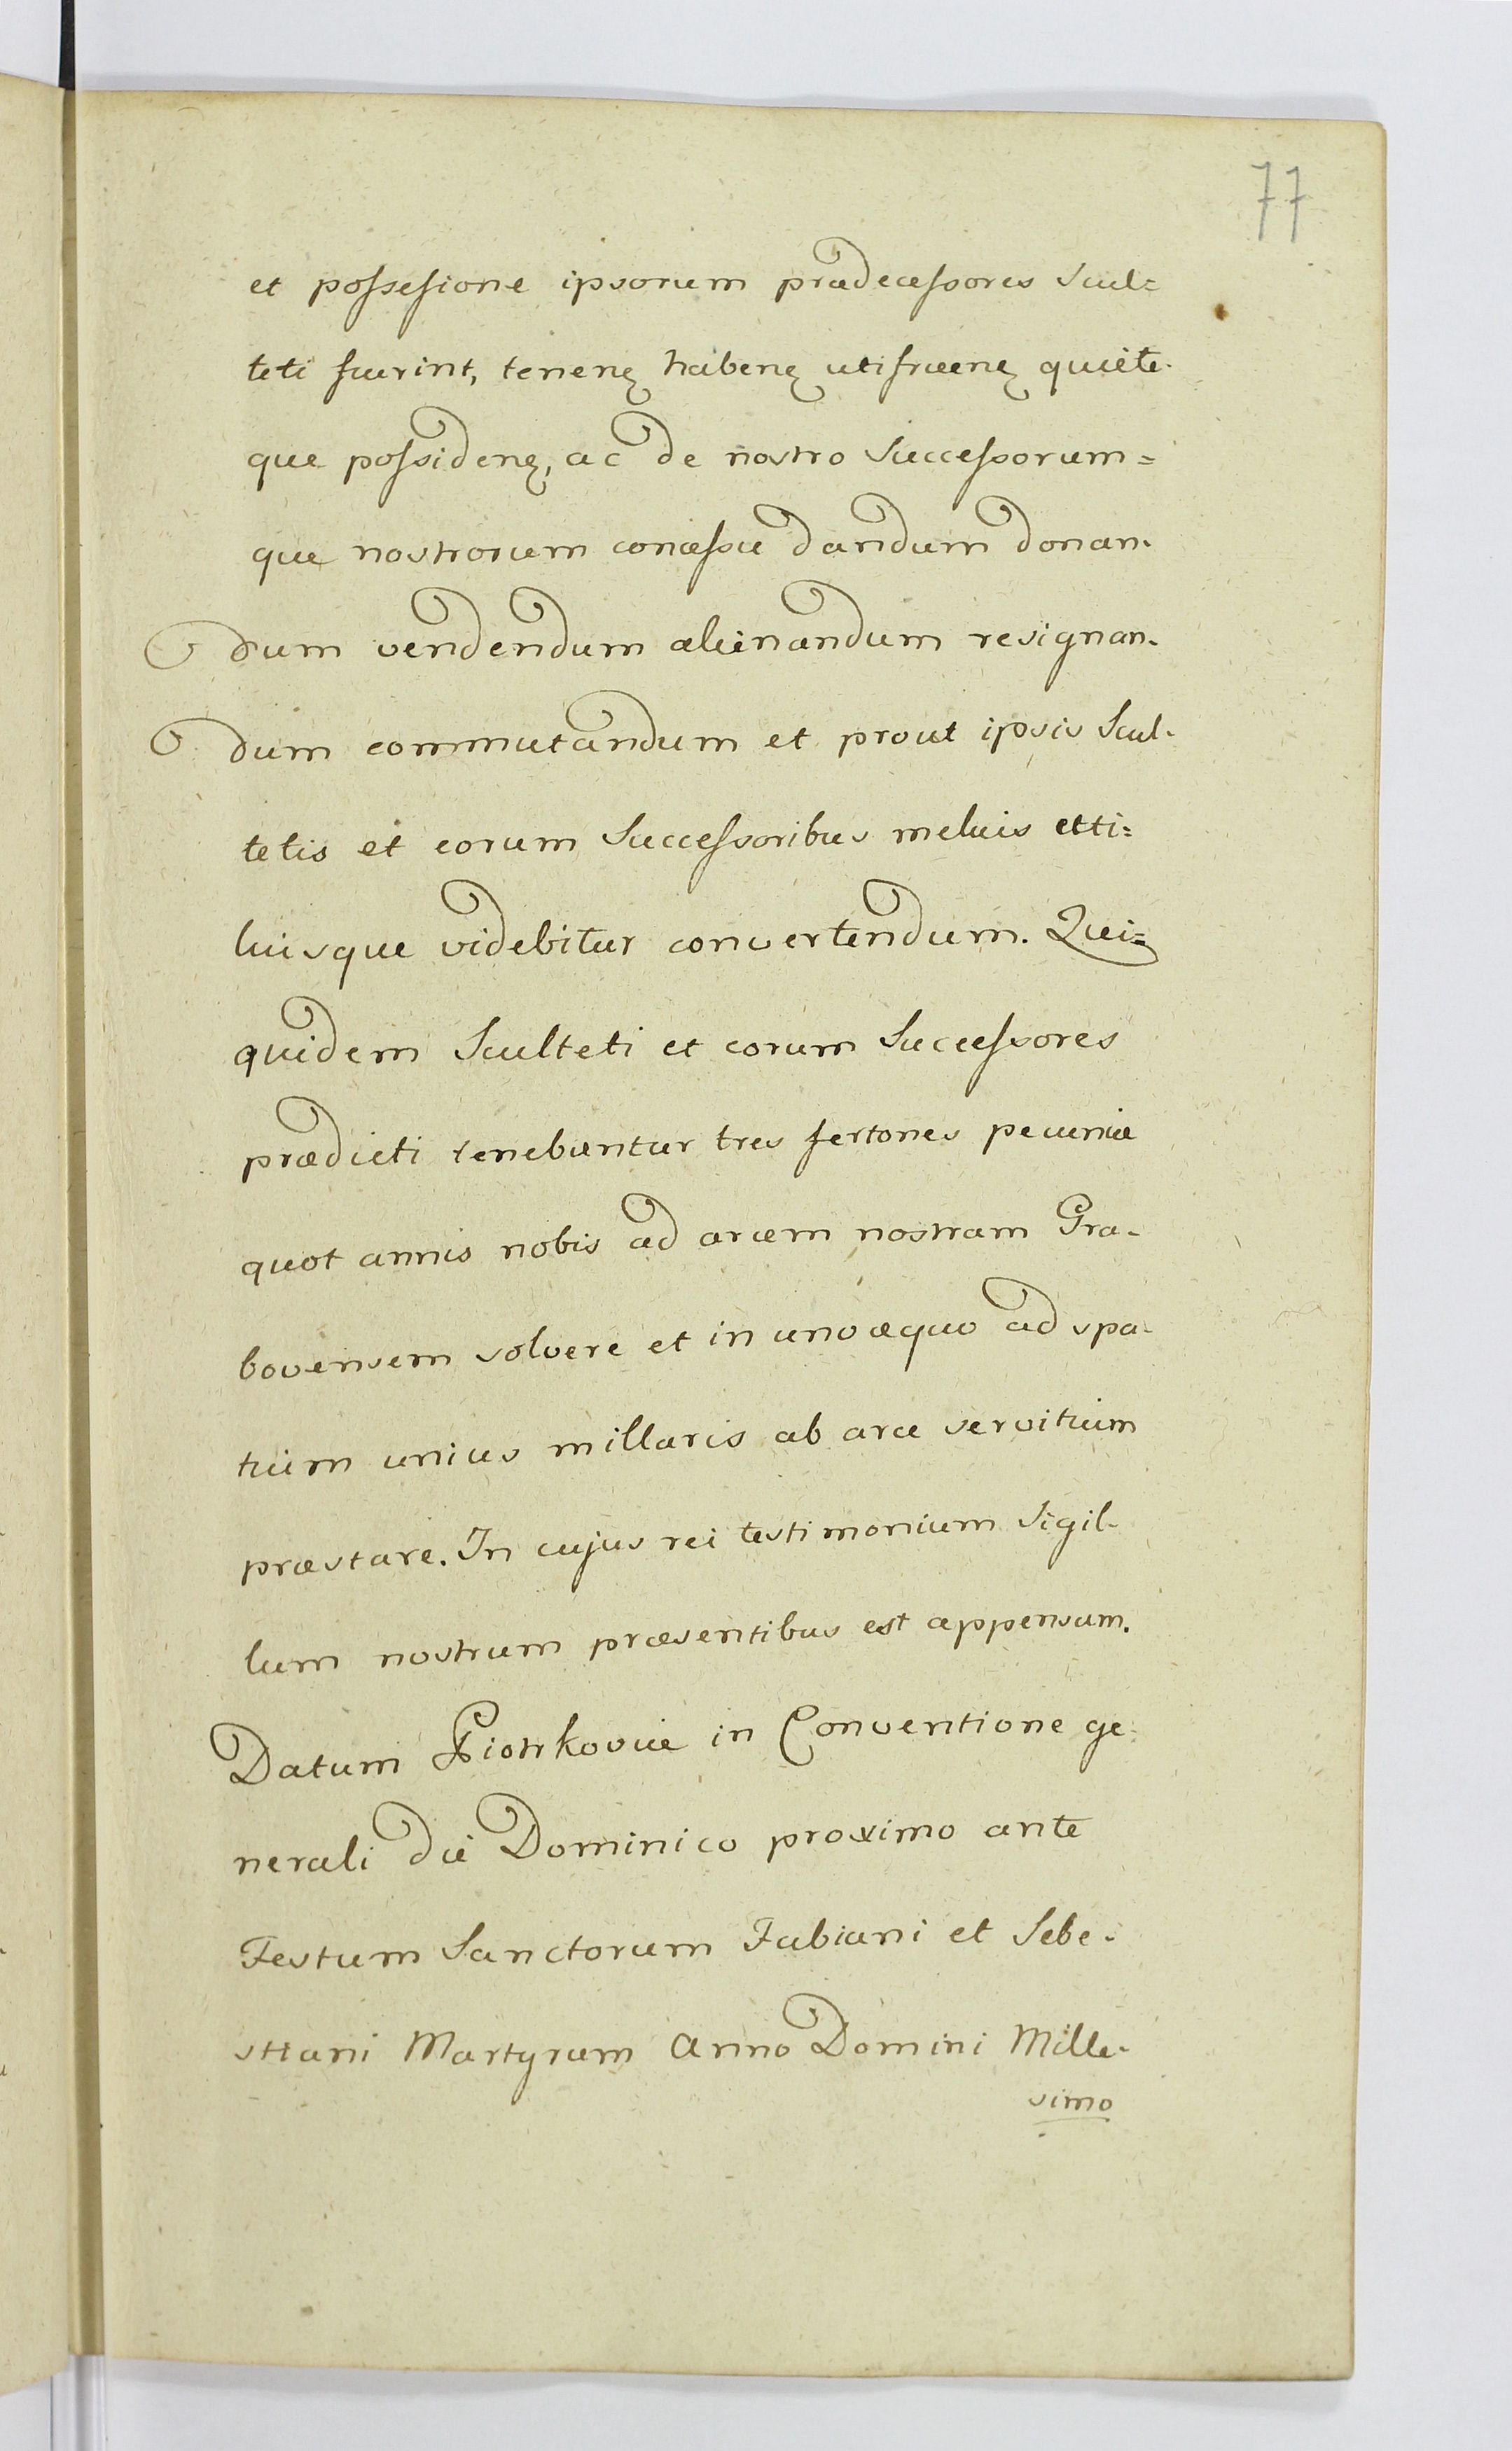 77
et possesione ipsorum prædecessores Scul=
teti fuerint, tenenꝫ habenꝫ utifruenꝫ quiete
que possidenꝫ, ac de nostro Successorum=
que nostrorum concessu dandum donan-
dum vendendum alienandum resignan-
dum commutandum et prout ipsis Scul-
tetis et eorum Successoribus melius etti=
liusque videbitur convertendum. Qui=
quidem Sculteti et eorum Successores
prædicti tenebuntur tres fertones pecuniæ
quot annis nobis ad arcem nostram Gra-
bovensem solvere et in uno æquo ad spa-
tium unius millaris ab arce servitium
præstare. In cujus rei testimonium Sigil-
lum nostrum præsentibus est appensum.
Datum Piotrkoviæ in Conventione ge-
nerali die Dominico proximo ante
Festum Sanctorum Fabiani et Sebe-
stiani Martyrum Anno Domini Mille-
simo